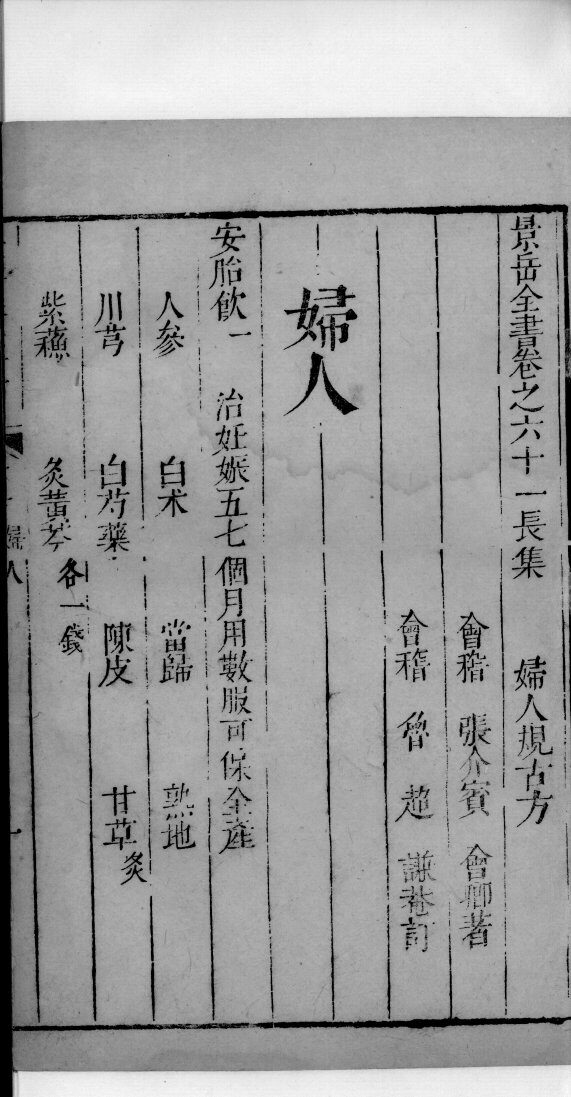 景岳全書卷之六十一長集　婦人規古方
會稽　張介賓　會卿著
會稽　魯　超　謙菴訂
婦人
安胎飲一　治妊娠五七個月用數服可保全產
人參　白术　當歸　熟地
川芎　白芍藥　陳皮　甘草炙
紫蘓　炙黃芩各一錢
婦人